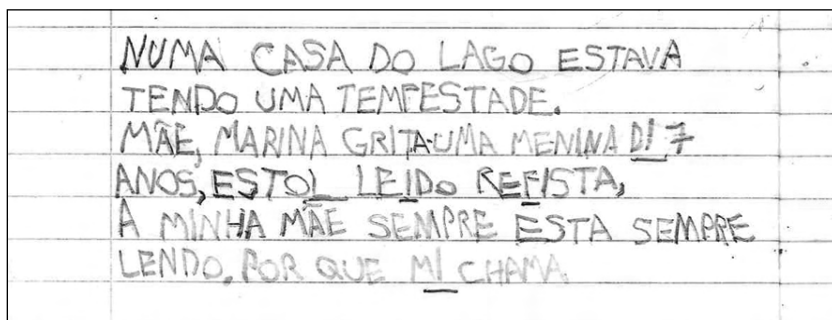 NUMA CASA DO LAGO ESTAVA
TENDO UMA TEMPESTADE.
MÃE, MARINA GRITA-UMA MENINA DI 7
ANOS, ESTOL LEIDO REFISTA,
A MINHA MÃE SEMPRE ESTA SEMPRE
LENDO. POR QUE MI CHAMA